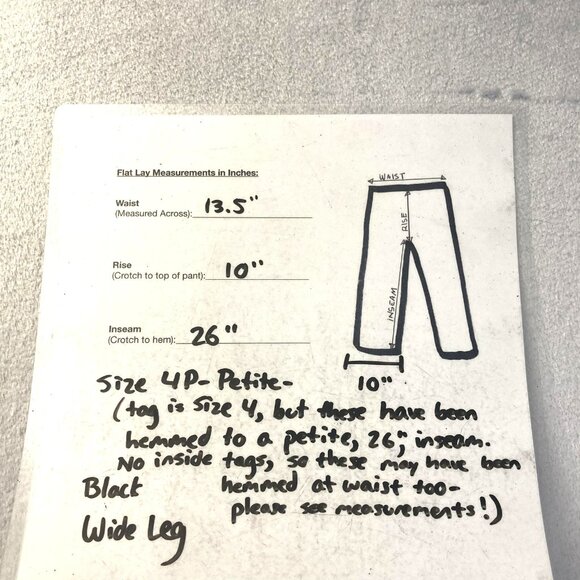 Flat Lay Measurements in Inches:
WAIST
Waist
(Measured Across): 13.5"
RISE
Rise
(Crotch to top of pant): 10"
INSEAM
Inseam
(Crotch to hem): 26"
10"
Size 4P- Petite-
(tag is size 4, but these have been
hemmed to a petite, 26", inseam.
No inside tags, so these may have been
Black hemmed at waist too-
please see measurements!)
Wide Leg